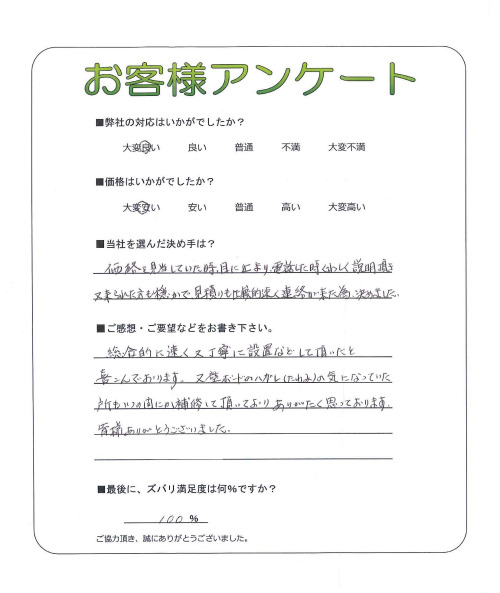 お客様アンケート
■弊社の対応はいかがでしたか?
大変良い 良い 普通 不満 大変不満
■価格はいかがでしたか?
大変安い 安い 普通 高い 大変高い
■当社を選んだ決め手は?
価格を見当していた時、目に止まり電話した時くわしく説明頂き
又来られた方も穏かで見積りも比較的速く連絡が来た為、決めました。
■ご感想・ご要望などをお書き下さい。
総合的に速く又丁寧に設置などして頂いたと
喜こんでおります。又壁ボードのハガレ(たれみ)の気になっていた
所もいつの間にか補修して頂いておりありがたく思っております。
皆様ありがとうございました。
■最後に、ズバリ満足度は何%ですか?
100 %
ご協力頂き、誠にありがとうございました。